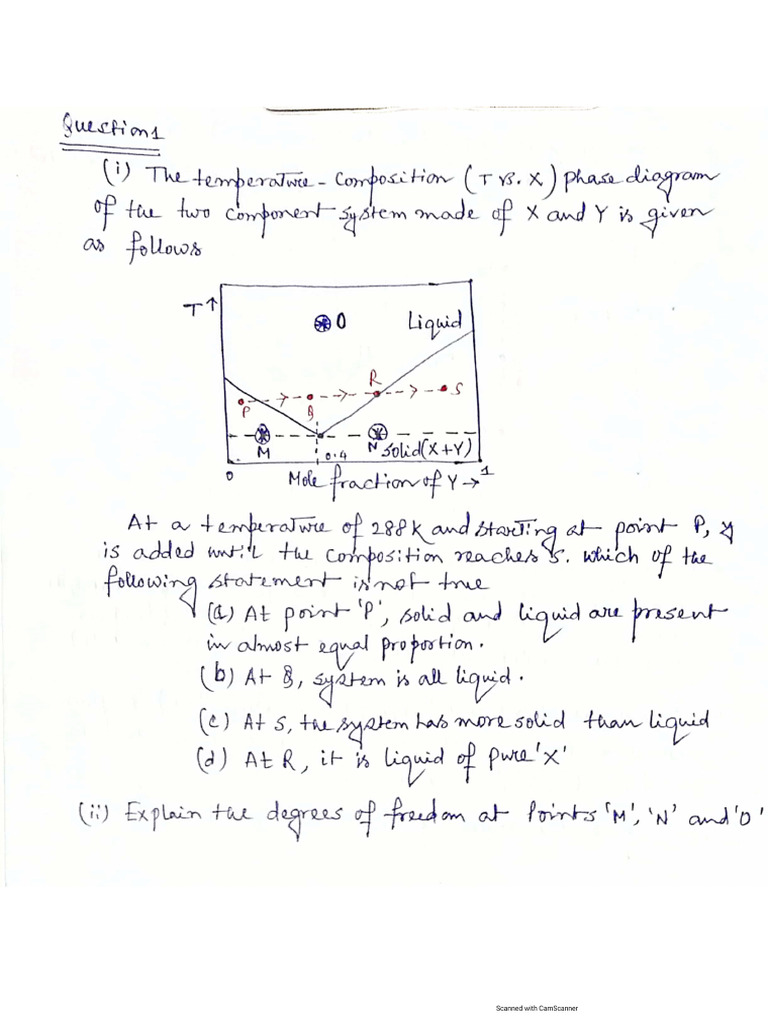 Question 1
(i) The temperature - composition (T vs. X) phase diagram
of the two component system made of X and Y is given
as follows
T↑
O
Liquid
R
P
Q
S
M
0.4
N
Solid(X+Y)
0
Mole fraction of Y →
1
At a temperature of 288K and starting at point P, Y
is added until the composition reaches S. which of the
following statement is not true
(a) At point 'P', solid and liquid are present
in almost equal proportion.
(b) At Q, system is all liquid.
(c) At S, the system has more solid than liquid
(d) At R, it is liquid of pure 'X'
(ii) Explain the degrees of freedom at Points 'M', 'N' and 'O'
Scanned with CamScanner